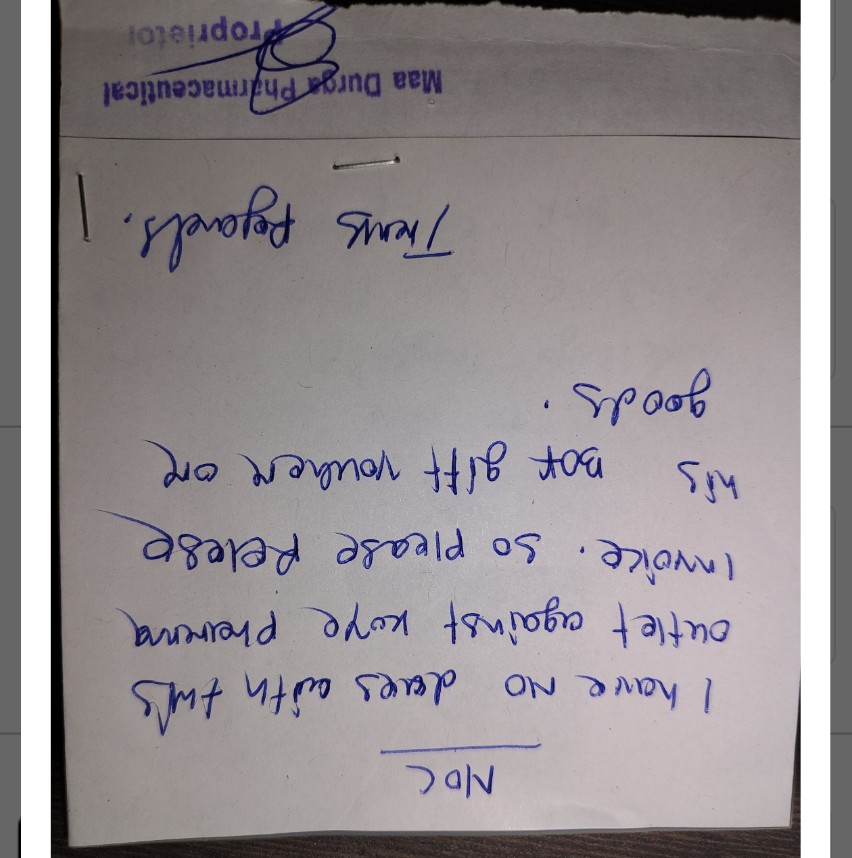 NOC
I have NO dues with this
outlet against hope pharma
Invoice. So please Release
his BOX gift voucher or
goods.
Thanks Regards.
Maa Durga Pharmaceutical
Proprietor